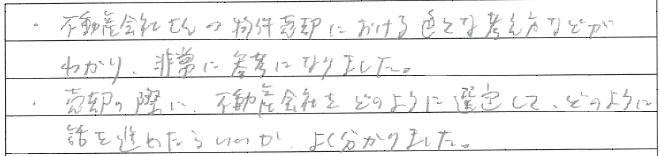 ・不動産会社さんの物件売却における色々な考え方などが
わかり、非常に参考になりました。
・売却の際に、不動産会社をどのように選定して、どのように
話を進めたらいいのか、よく分かりました。